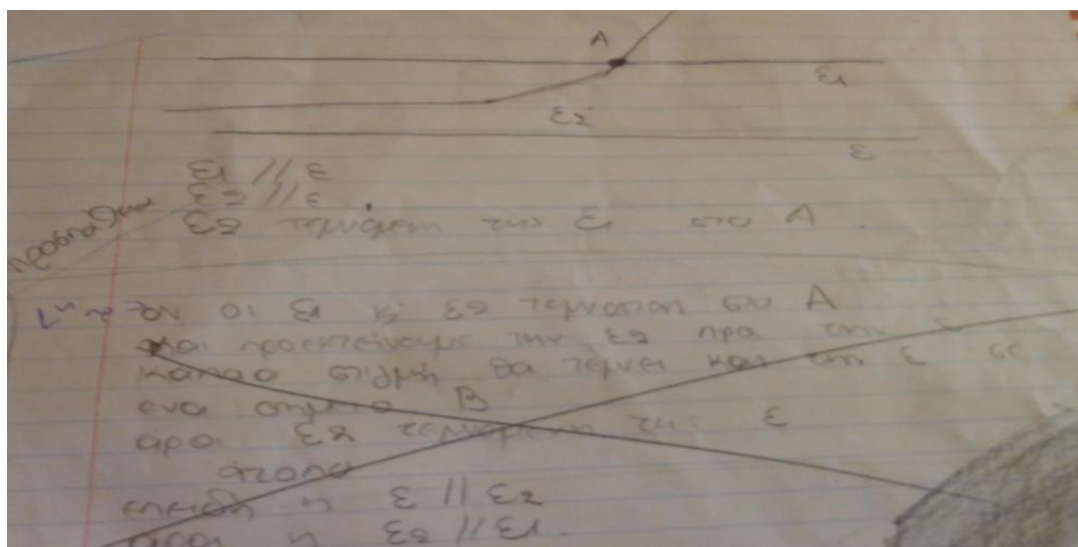 A
ε1
ε2
ε
ε1 // ε
ε2 // ε
προσπάθεια
ε2 τεμνόμενη την ε1 στο A
1η αν οι ε1 κ' ε2 τέμνονται στο A
και προεκτείνουμε την ε2 προς την ε
κάποια στιγμή θα τέμνει και την ε σε
ένα σημείο B
άρα ε2 τεμνόμενη της ε
άτοπο
επειδή η ε // ε2
άρα η ε2 // ε1.